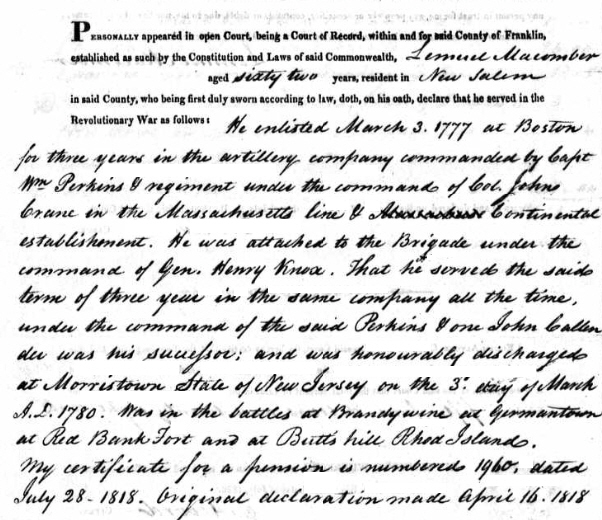 PERSONALLY appeared in open Court, being a Court of Record, within and for said County of Franklin,
established as such by the Constitution and Laws of said Commonwealth, Lemuel Macomber
aged sixty two years, resident in New Salem
in said County, who being first duly sworn according to law, doth, on his oath, declare that he served in the
Revolutionary War as follows: He enlisted March 3. 1777 at Boston
for three years in the artillery company commanded by Capt
Wm Perkins & regiment under the command of Col. John
Crane in the Massachusetts line & Continental
establishment. He was attached to the Brigade under the
command of Gen. Henry Knox. That he served the said
term of three year in the same company all the time,
under the command of the said Perkins & one John Callen
der was his successor; and was honourably discharged
at Morristown State of New Jersey on the 3d. day of March
A.D. 1780. Was in the battles at Brandywine at Germantown
at Red Bank Fort and at Butts hill Rhod Island.
My certificate for a pension is numbered 1960. dated
July 28 - 1818. Original declaration made April 16. 1818